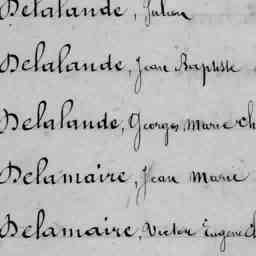 Delalande, Julien
Delalande, Jean Baptiste
Delalande, Georges Marie Ch
Delamaire, Jean Marie
Delamaire, Victor Eugene